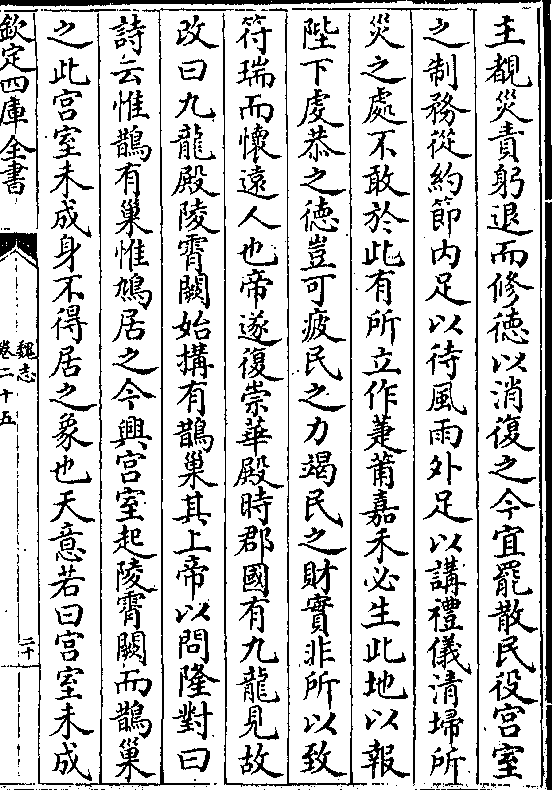 主覩災責躬退而修徳以消復之今宜罷散民役宫室
之制務從約節内足以待風雨外足以講禮儀清埽所
災之處不敢於此有所立作萐莆嘉禾必生此地以報
陛下虔恭之徳豈可疲民之力竭民之財實非所以致
符瑞而懷遠人也帝遂復崇華殿時郡國有九龍見故
改曰九龍殿陵霄闕始搆有鵲巢其上帝以問隆對曰
詩云惟鵲有巢惟鳩居之今興宫室起陵霄闕而鵲巢
之此宫室未成身不得居之象也天意若曰宫室未成
欽定四庫全書
魏志
卷二十五
二十